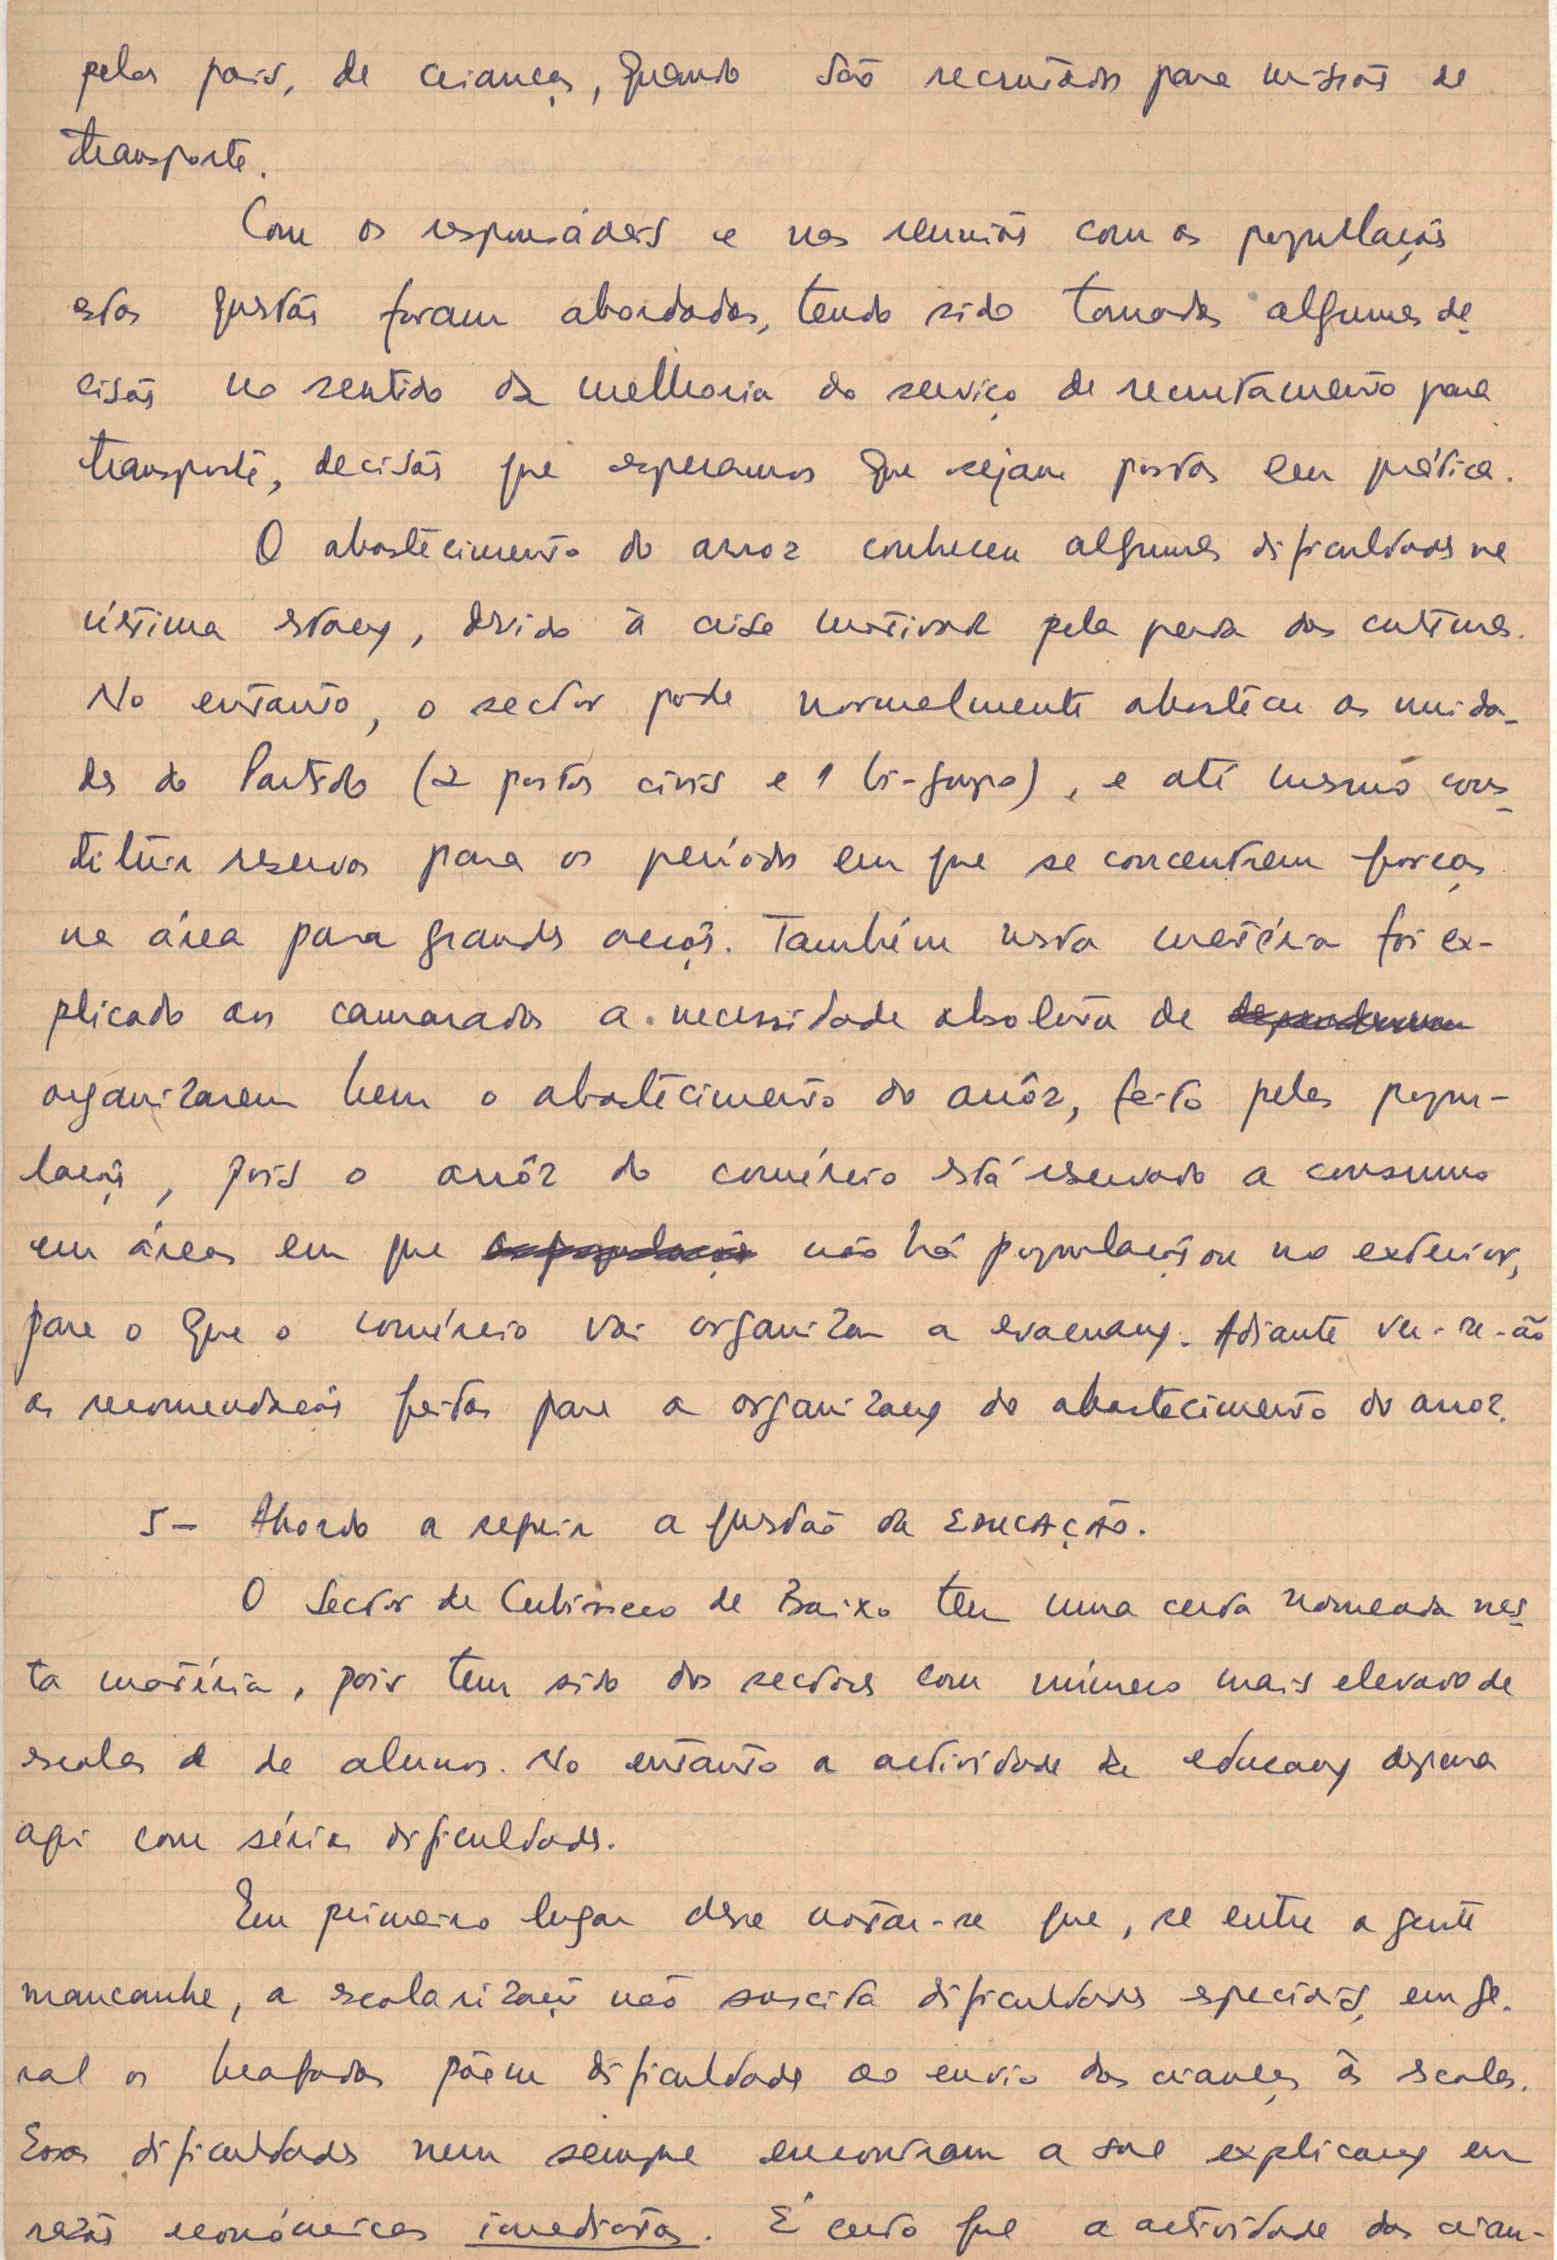 pelos pais, de crianças, quando são recrutados para missões de
transporte.
Com os responsáveis e nas reuniões com as populações
estas questões foram abordadas, tendo sido tomadas algumas de
cisões no sentido da melhoria do serviço de recrutamento para
transporte, decisões que esperamos que sejam postas em prática.
O abastecimento do arroz conheceu algumas dificuldades na
última estação, devido à crise motivada pela perda das culturas.
No entanto, o sector pode normalmente abastecer as unida-
des do Partido (2 postos civis e 1 bi-grupo), e até mesmo cons
tituir reservas para os períodos em que se concentrem forças
na área para grandes acções. Também nesta matéria foi ex-
plicado aos camaradas a necessidade absoluta de
organizarem bem o abastecimento do arrôz, feito pelas popu-
lações, pois o arrôz do comércio está reservado a consumo
em áreas em que as populações não há populações ou no exterior,
para o que o comércio vai organizar a evacuação. Adiante ver-se-ão
as recomendações feitas para a organização do abastecimento do arroz.
5- Abordo a seguir a questão da EDUCAÇÃO.
O Sector de Cubisseco de Baixo tem uma certa nomeada nes
ta matéria, pois tem sido dos sectores com número mais elevado de
escolas e de alunos. No entanto a actividade de educação depara
aqui com sérias dificuldades.
Em primeiro lugar deve notar-se que, se entre a gente
mancanhe, a escolarização não suscita dificuldades especiais, em ge-
ral os beafadas põem dificuldades ao envio das crianças às escolas.
Essas dificuldades nem sempre encontram a sua explicação em
razões económicas imediatas. É certo que a actividade das crian-